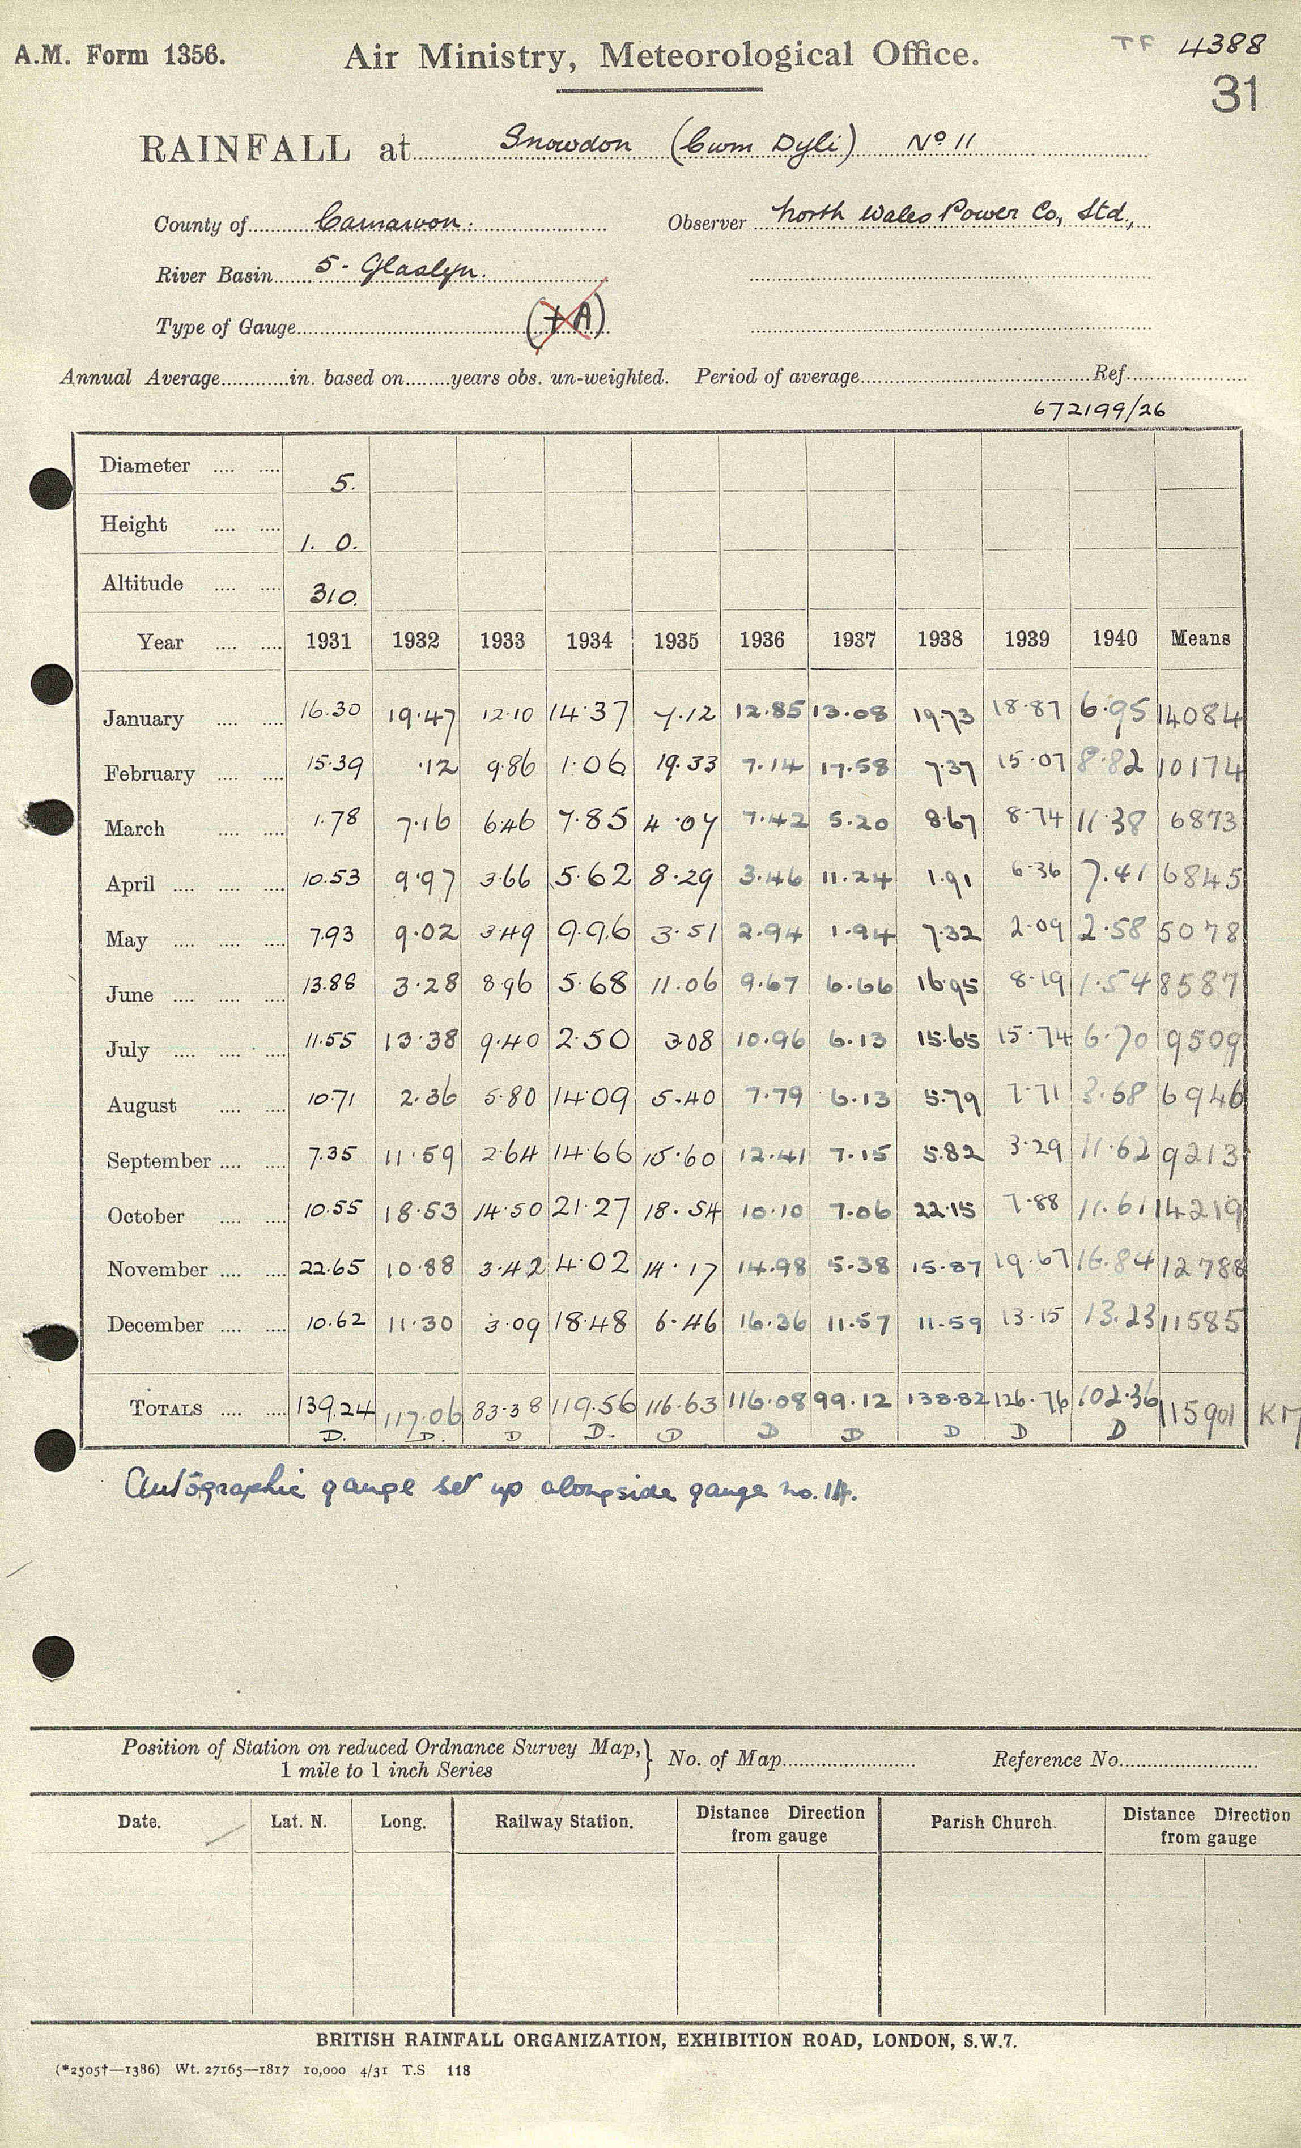 A.M. Form 1356. Air Ministry, Meteorological Office. TF 4388
31
RAINFALL at Snowdon (Cwm Dyli) No 11
County of Carnarvon. Observer North Wales Power Co, Ltd.,
River Basin 5 - Glaslyn.
Type of Gauge (+A)
Annual Average in. based on years obs. un-weighted. Period of average Ref.
672199/26
Diameter 5.
Height 1. 0.
Altitude 310.
Year 1931 1932 1933 1934 1935 1936 1937 1938 1939 1940 Means
January 16.30 19.47 12.10 14.37 7.12 12.85 13.08 19.73 18.87 6.95 14084
February 15.39 .12 9.86 1.06 19.33 7.14 17.58 7.37 15.07 8.82 10174
March 1.78 7.16 6.46 7.85 4.07 7.42 5.20 8.67 8.74 11.38 6873
April 10.53 9.97 3.66 5.62 8.29 3.46 11.24 1.91 6.36 7.41 6845
May 7.93 9.02 3.49 9.96 3.51 2.94 1.94 7.32 2.09 2.58 5078
June 13.88 3.28 8.96 5.68 11.06 9.67 6.66 16.95 8.19 1.54 8587
July 11.55 13.38 9.40 2.50 3.08 10.96 6.13 15.65 15.74 6.70 9509
August 10.71 2.36 5.80 14.09 5.40 7.79 6.13 5.79 7.71 3.68 6946
September 7.35 11.59 2.64 14.66 15.60 12.41 7.15 5.82 3.29 11.62 9213
October 10.55 18.53 14.50 21.27 18.54 10.10 7.06 22.15 7.88 11.61 14219
November 22.65 10.88 3.42 4.02 14.17 14.98 5.38 15.87 19.67 16.84 12788
December 10.62 11.30 3.09 18.48 6.46 16.36 11.57 11.59 13.15 13.23 11585
TOTALS 139.24 117.06 83.38 119.56 116.63 116.08 99.12 138.82 126.76 102.36 115901 KM
D. D. D D. D D D D D D
Autographic gauge set up alongside gauge no. 14.
Position of Station on reduced Ordnance Survey Map, } No. of Map Reference No.
1 mile to 1 inch Series
Date. Lat. N. Long. Railway Station. Distance Direction Parish Church. Distance Direction
from gauge from gauge
BRITISH RAINFALL ORGANIZATION, EXHIBITION ROAD, LONDON, S.W.7.
(*2505†—1386) Wt. 27165—1817 10,000 4/31 T.S 118